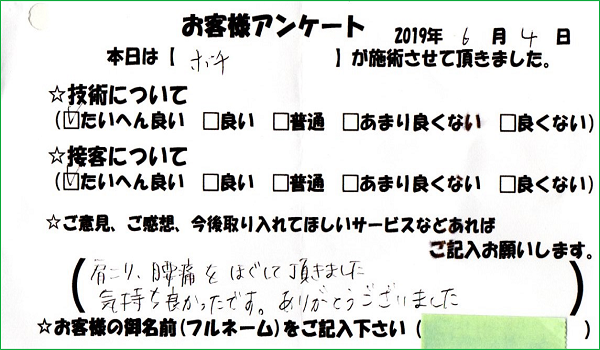 お客様アンケート 2019年 6 月 4 日
本日は【 ホンチ 】が施術させて頂きました。
☆技術について
(☑たいへん良い □良い □普通 □あまり良くない □良くない)
☆接客について
(☑たいへん良い □良い □普通 □あまり良くない □良くない)
☆ご意見、ご感想、今後取り入れてほしいサービスなどあれば
ご記入お願いします。
(肩こり、腰痛をほぐして頂きました
気持ち良かったです。ありがとうございました)
☆お客様の御名前(フルネーム)をご記入下さい( )